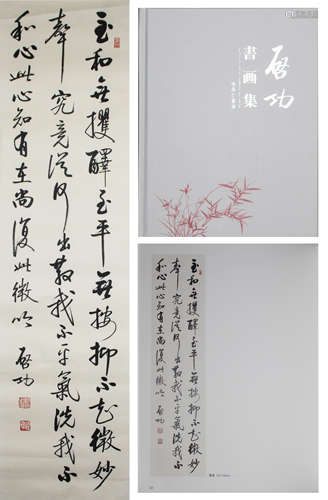 至和無攫醳至平無按抑不知微妙
聲究竟從何出散我不平氣洗我不
和心此心知有在尚復此微吟 啓功
啓功
書画集
至和無攫醳至平無按抑不知微妙
聲究竟從何出散我不平氣洗我不
和心此心知有在尚復此微吟 啓功